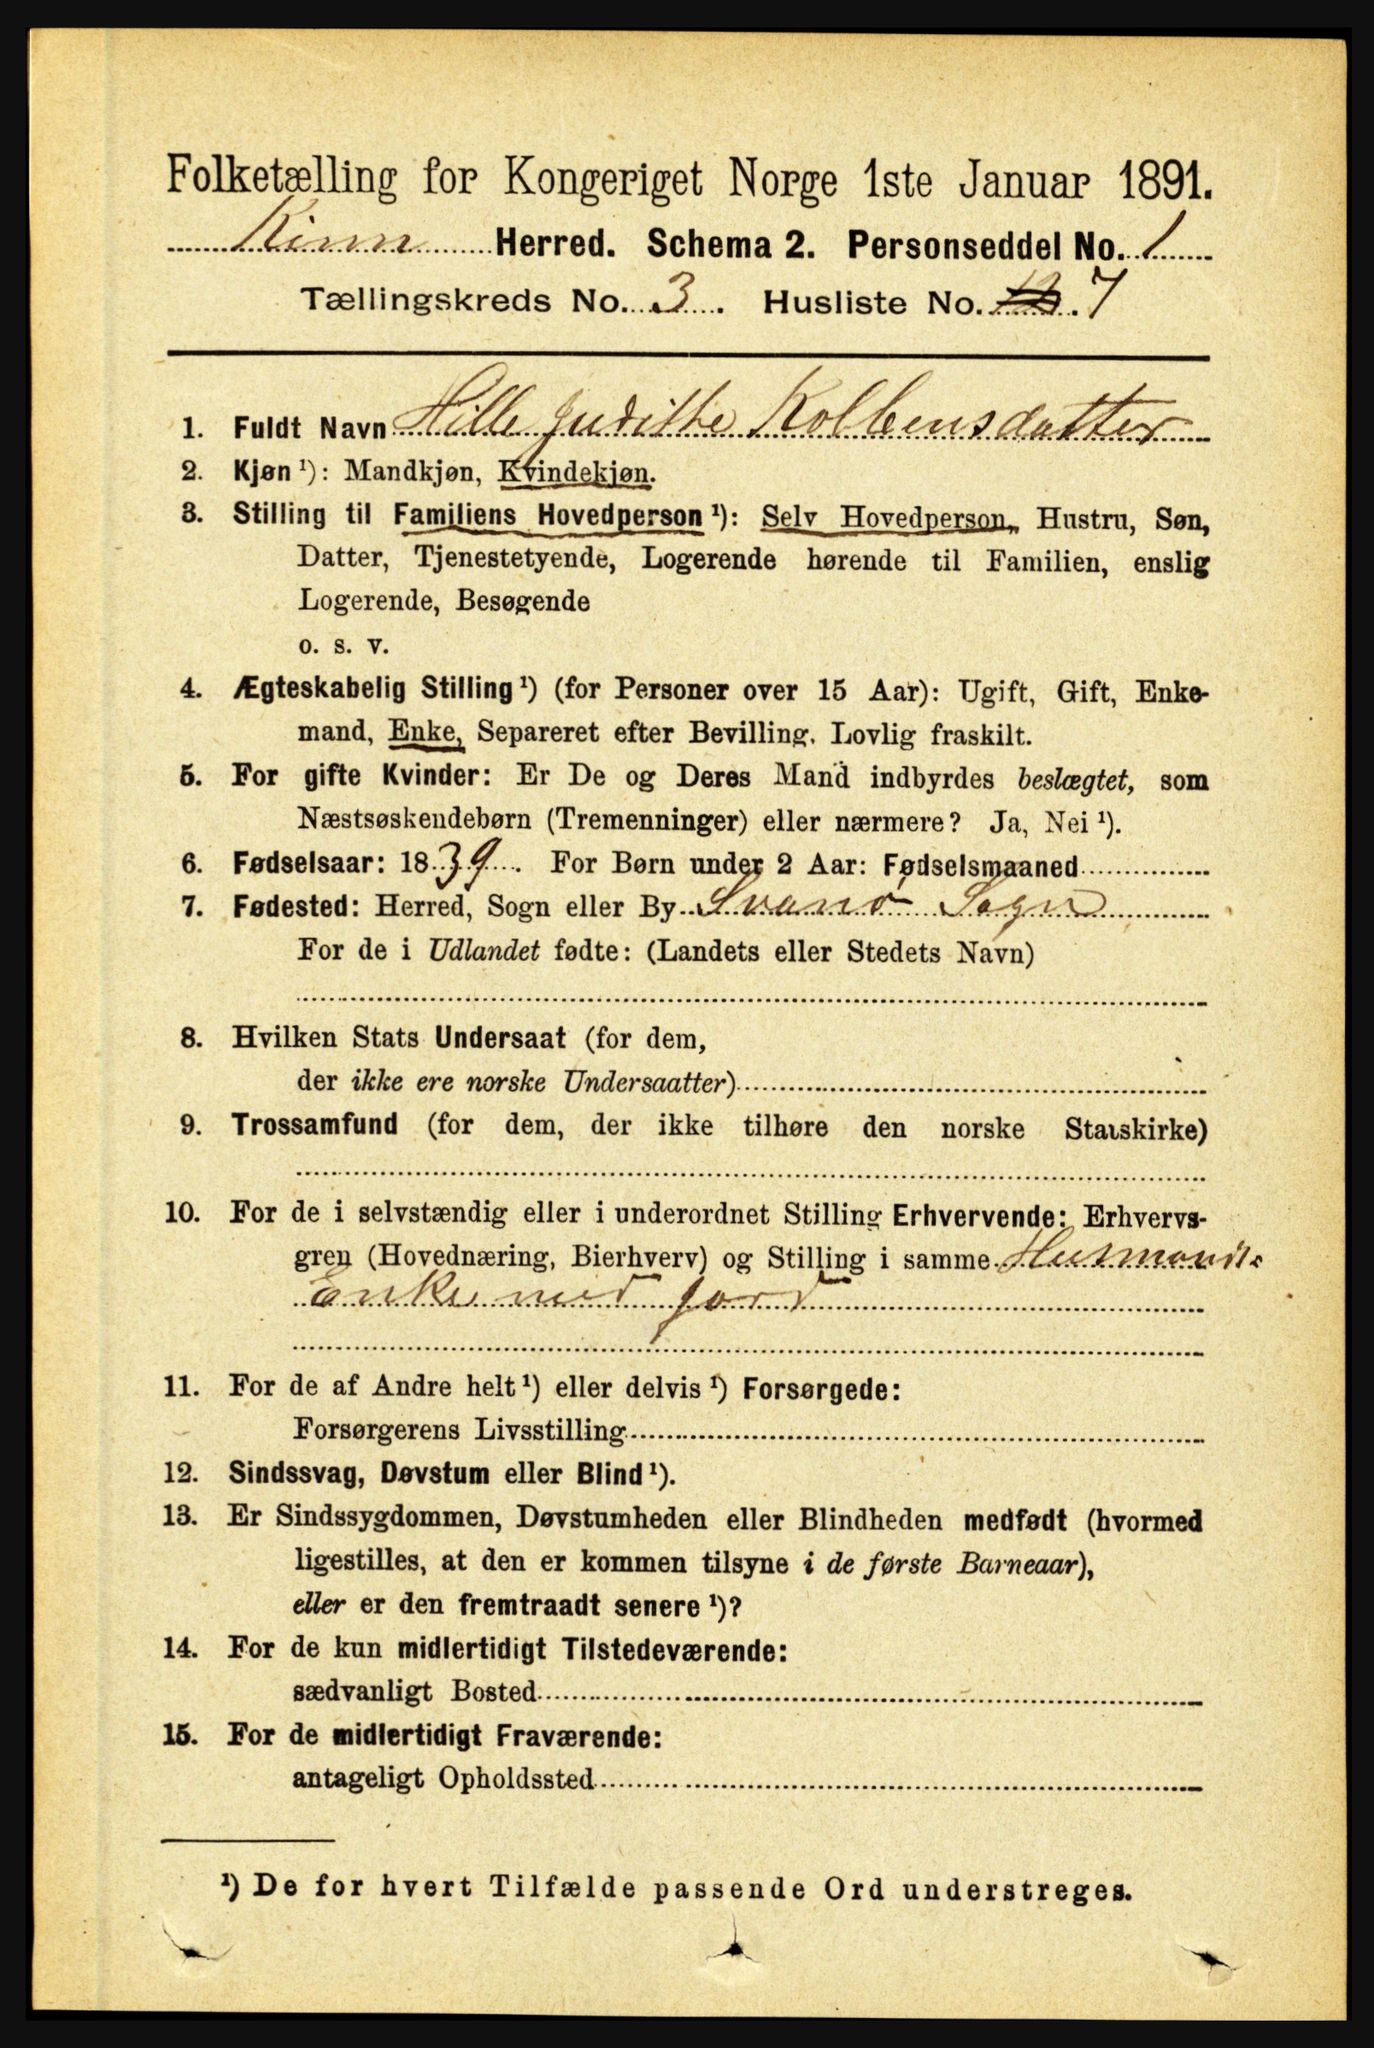 Folketælling for Kongeriget Norge 1ste Januar 1891.
Kinn Herred. Schema 2. Personseddel No. 1
Tællingskreds No. 3. Husliste No. 7
1. Fuldt Navn Hille Judithe Kolbensdatter
2. Kjøn ¹): Mandkjøn, Kvindekjøn.
3. Stilling til Familiens Hovedperson ¹): Selv Hovedperson, Hustru, Søn,
Datter, Tjenestetyende, Logerende hørende til Familien, enslig
Logerende, Besøgende
o. s. v.
4. Ægteskabelig Stilling ¹) (for Personer over 15 Aar): Ugift, Gift, Enke-
mand, Enke, Separeret efter Bevilling. Lovlig fraskilt.
5. For gifte Kvinder: Er De og Deres Mand indbyrdes beslægtet, som
Næstsøskendebørn (Tremenninger) eller nærmere? Ja, Nei ¹).
6. Fødselsaar: 1839. For Børn under 2 Aar: Fødselsmaaned
7. Fødested: Herred, Sogn eller By Svanø Sogn
For de i Udlandet fødte: (Landets eller Stedets Navn)
8. Hvilken Stats Undersaat (for dem,
der ikke ere norske Undersaatter)
9. Trossamfund (for dem, der ikke tilhøre den norske Statskirke)
10. For de i selvstændig eller i underordnet Stilling Erhvervende: Erhvervs-
gren (Hovednæring, Bierhverv) og Stilling i samme Husmands
Enke med jord
11. For de af Andre helt ¹) eller delvis ¹) Forsørgede:
Forsørgerens Livsstilling
12. Sindssvag, Døvstum eller Blind ¹).
13. Er Sindssygdommen, Døvstumheden eller Blindheden medfødt (hvormed
ligestilles, at den er kommen tilsyne i de første Barneaar),
eller er den fremtraadt senere ¹)?
14. For de kun midlertidigt Tilstedeværende:
sædvanligt Bosted
15. For de midlertidigt Fraværende:
antageligt Opholdssted
¹) De for hvert Tilfælde passende Ord understreges.